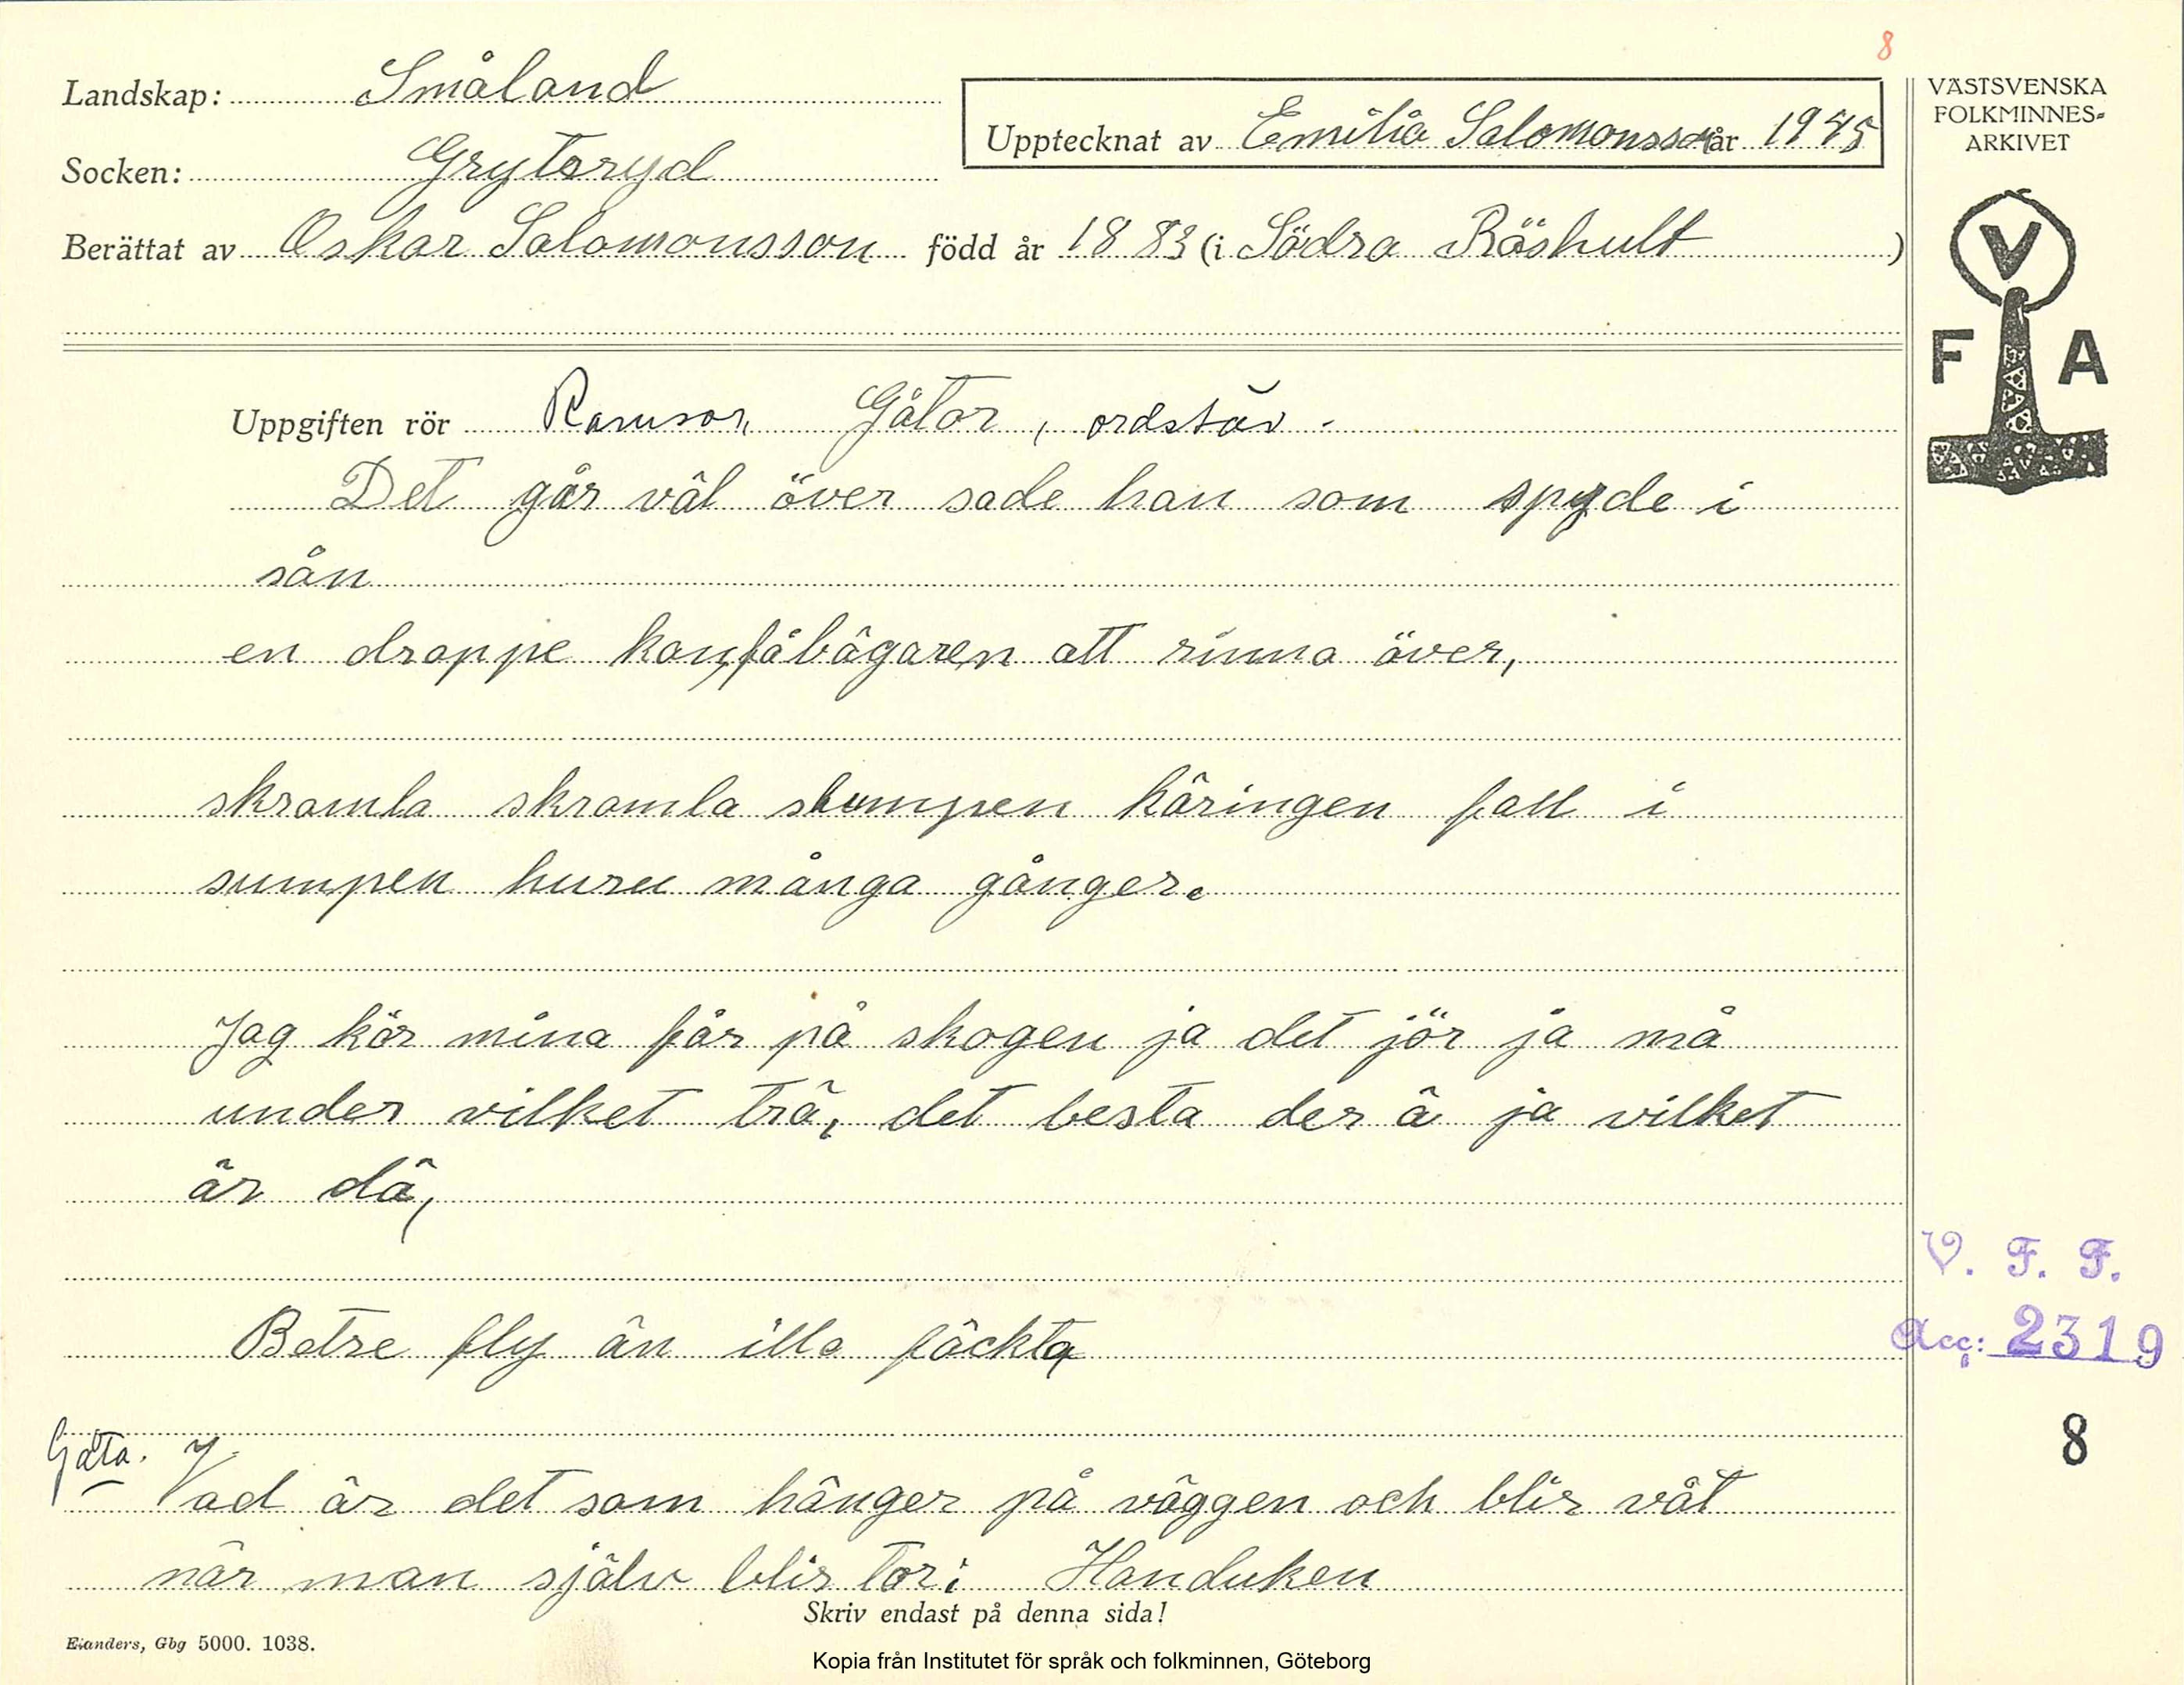 8
Landskap: Småland
Socken: Gryteryd
Upptecknat av Emilia Salomonsson år 1945
Berättat av Oskar Salomonsson född år 1883 (i Södra Råshult )
VÄSTSVENSKA
FOLKMINNES=
ARKIVET
V
F A
Uppgiften rör Ramsor, Gåtor, ordstäv.
Det går väl över sade han som spyde i
sån
en droppe kan få bägaren att rinna över,
skramla skramla stumpen käringen fall i
sumpen huru många gånger.
Jag kör mina får på skogen ja det jör ja må
under vilket trä, det besta der ä ja vilket
är dä,
Betre fly än illa fäckta
V. F. F.
Acc: 2319
8
Gåta. Vad är det som hänger på väggen och blir våt
när man själv blir tor: Handuken
Skriv endast på denna sida!
Elanders, Gbg 5000. 1038.
Kopia från Institutet för språk och folkminnen, Göteborg